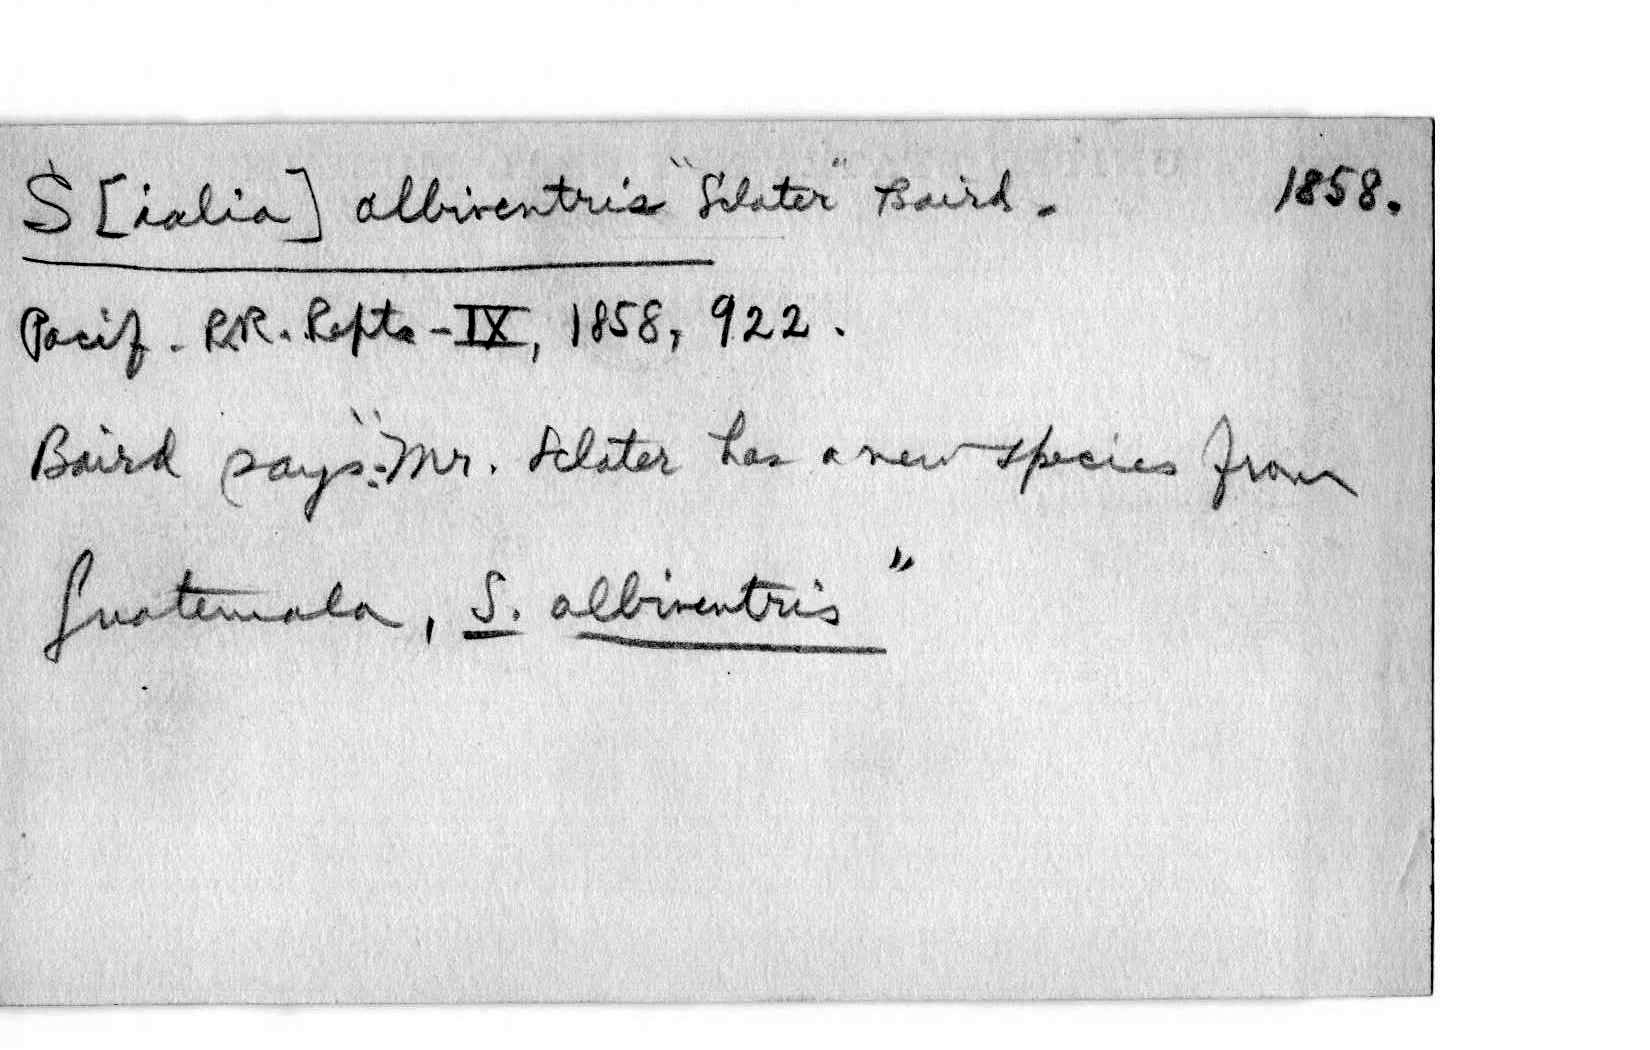 S[ialia] albiventris "Sclater" Baird. 1858.
Pacif. R.R. Repts-IX, 1858, 922.
Baird says: "Mr. Sclater has a new species from
Guatemala, S. albiventris"